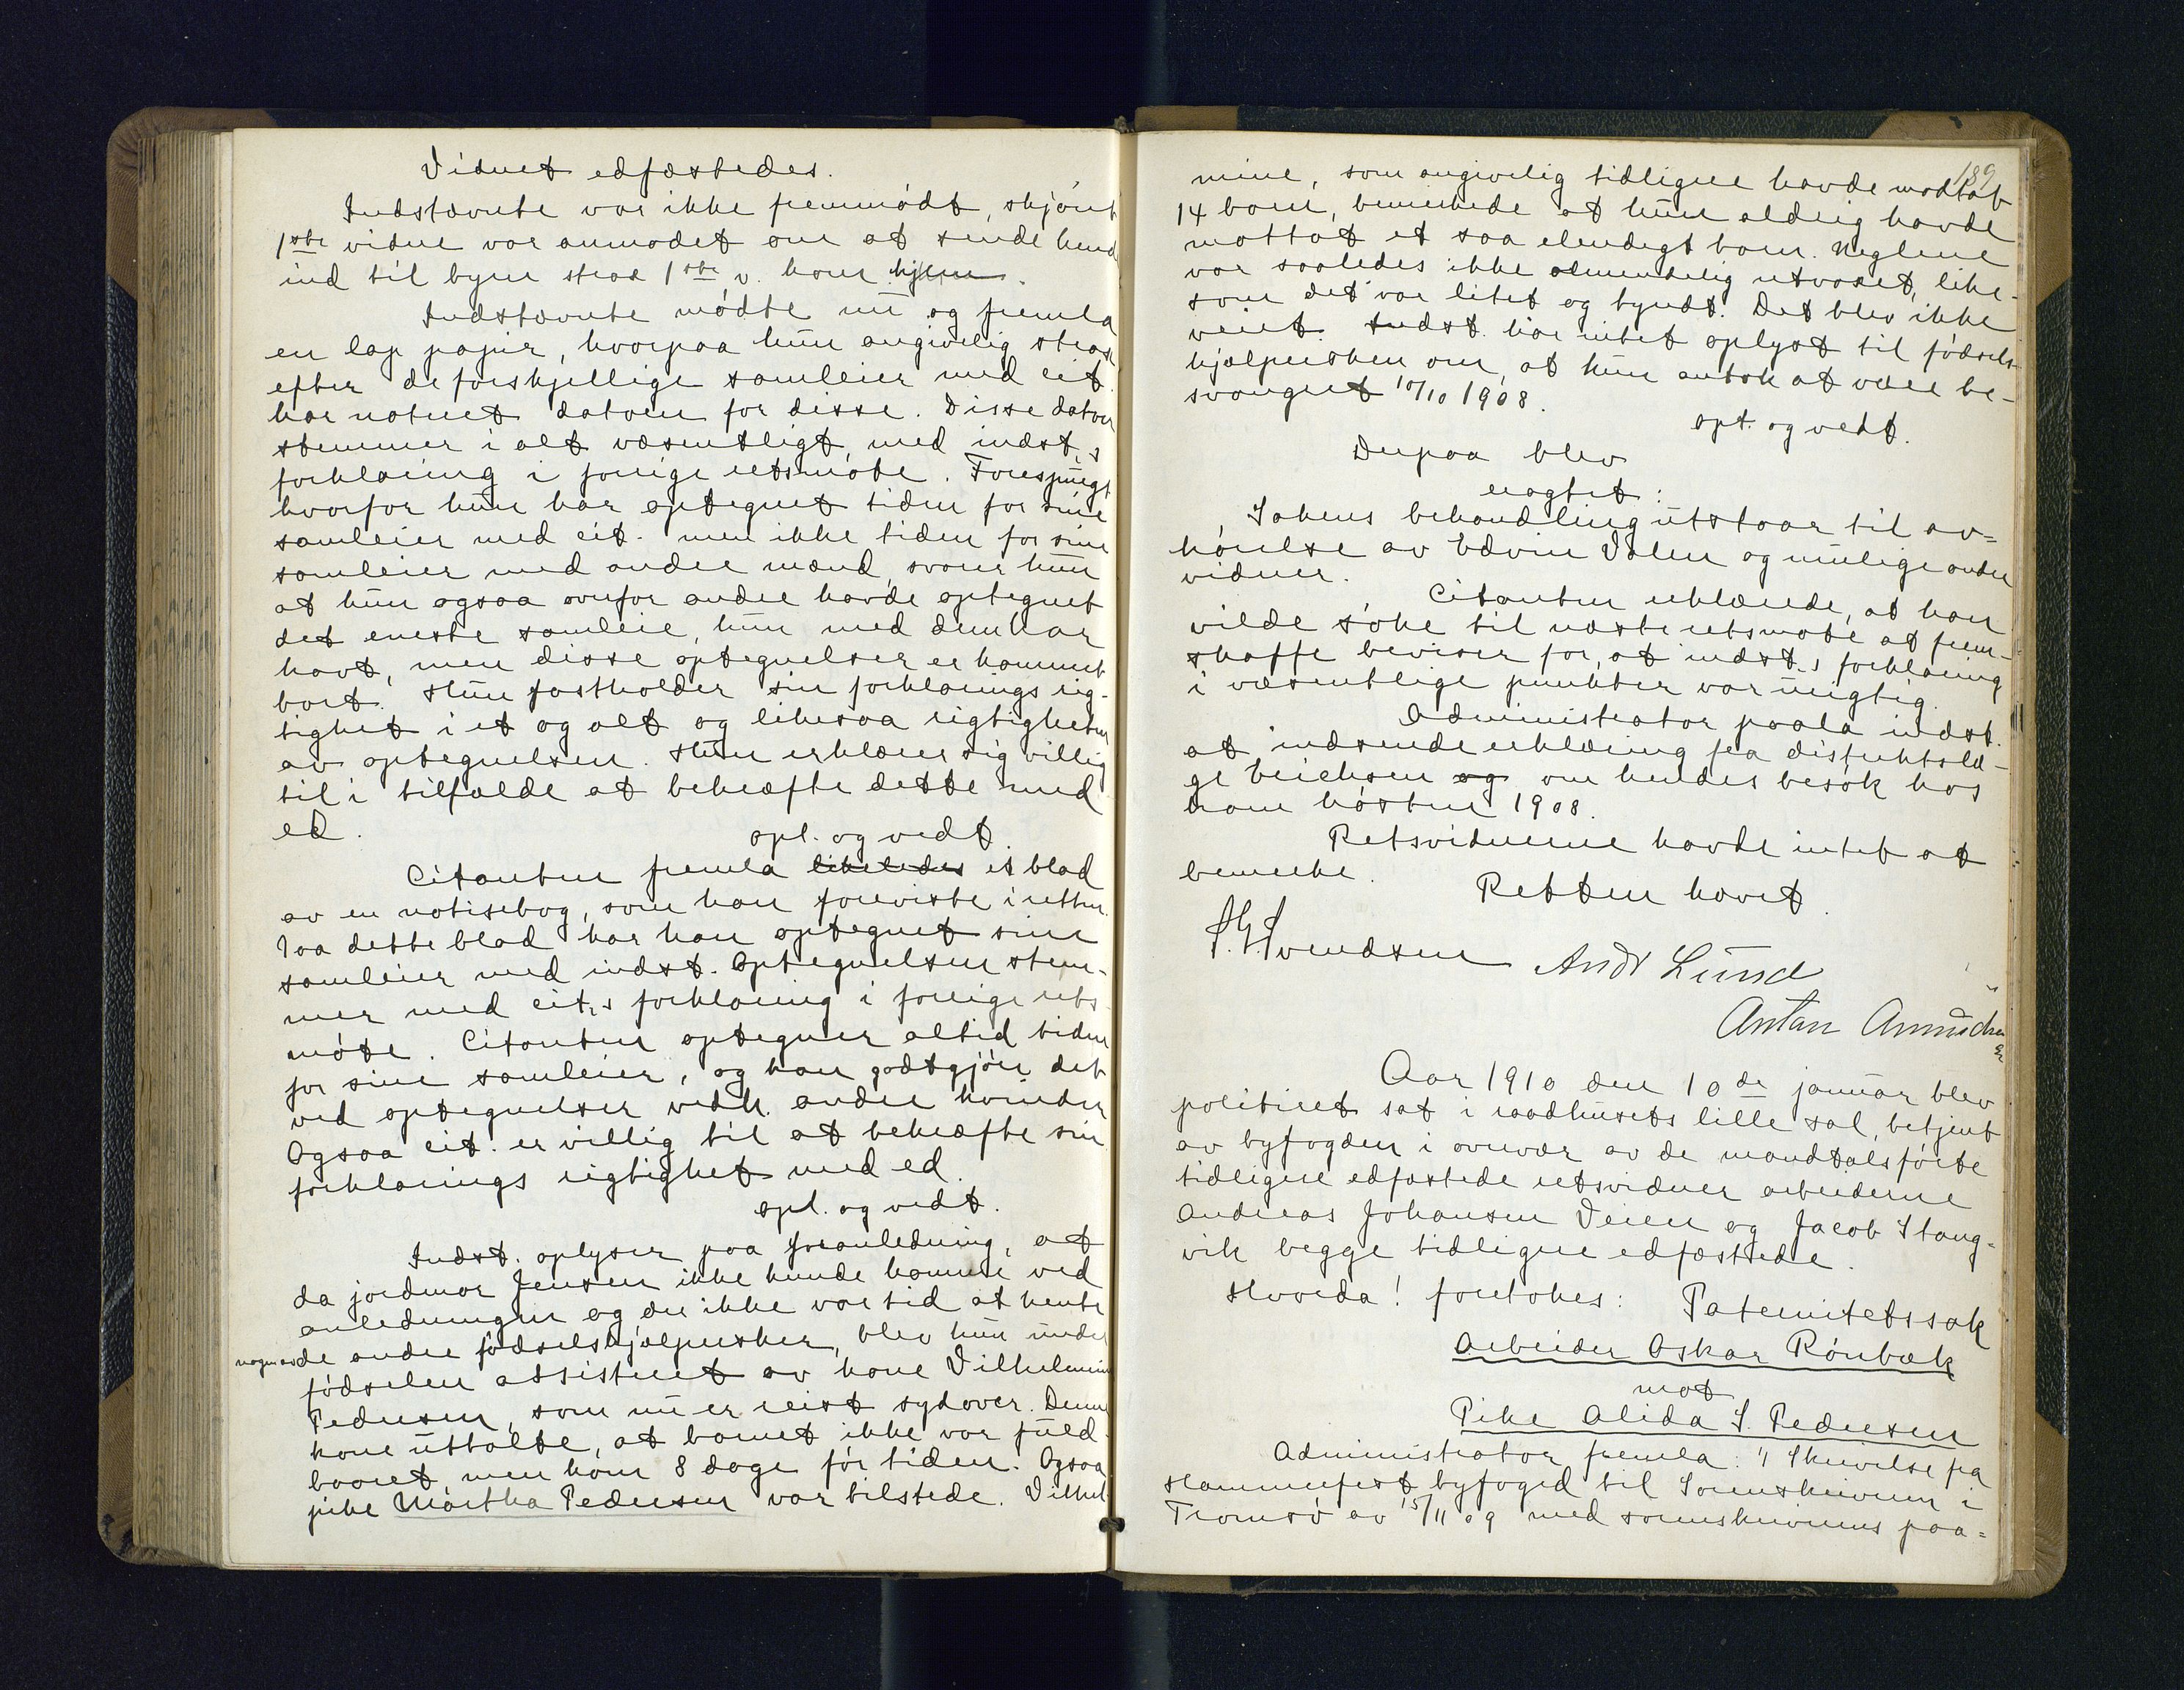 Vidnet edfæstedes.
Indstævnte var ikke fremmødt, skjønt
1ste vidne var anmodet om at sende hende
ind til byen strax 1ste v. kom hjem.
Indstævnte mødte nu og fremla
en lap papir, hvorpaa hun angivelig strax
efter de forskjellige samleier med cit.
har notert datoen for disse. Disse datoer
stemmer i alt væsentligt med indst.s
forklaring i forrige retsmøte. Forespurgt
hvorfor hun har optegnet tiden for sine
samleier med cit. men ikke tiden for sine
samleier med andre mænd, svarer hun
at hun ogsaa overfor andre havde optegnet
det eneste samleie, hun med dem har
havt, men disse optegnelser er kommet
bort. Hun fastholder sin forklarings rig-
tighet i et og alt og likesaa rigtigheten
av optegnelsen. Hun erklærer sig villig
til i tilfælde at bekræfte dette med
ed.
opl. og vedt.
Citanten fremla likeledes et blad
av en notisebog, som han foreviste i retten.
Paa dette blad har han optegnet sine
samleier med indst. Optegnelsen stem-
mer med cit.s forklaring i forrige rets-
møte. Citanten optegner altid tiden
for sine samleier, og han godtgjør det
ved optegnelser vedk. andre kvinder
Ogsaa cit. er villig til at bekræfte sin
forklarings rigtighet med ed.
opl. og vedt.
Indst. oplyser paa foranledning, at
da jordmor Jensen ikke kunde komme ved
anledningen og der ikke var tid at hente
nogen av de andre fødselshjælpersker, blev hun under
fødselen assisteret av kone Vilhelmine
Pedersen, som nu er reist sydover. Denne
kone uttalte, at barnet ikke var fuld-
baaret, men kom 8 dage før tiden. Ogsaa
pike Martha Pedersen var tilstede. Vilhel-
189
mine, som angivelig tidligere havde mottat
14 barn, bemerkede at hun aldrig havde
mottat et saa elendigt barn. Neglene
var saaledes ikke almindelig utvoxet, like-
som det var litet og tyndt. Det blev ikke
veiet. Indst. har intet oplyst til fødsels-
hjælpersken om, at hun antok at være be-
svangret 10/10 1908.
opl. og vedt.
Derpaa blev
eragtet:
Sakens behandling utstaar til av=
hørelse av Edvin Valen og mulige andre
vidner.
Citanten erklærede, at han
vilde søke til næste retsmøte at frem-
skaffe beviser for, at indst.s forklaring
i væsentlige punkter var urigtig.
Administrator paala indst.
at indsende erklæring fra distriktslæ-
ge Erichsen og om hendes besøk hos
ham høsten 1908.
Retsvidnerne havde intet at
bemerke.
Retten hævet.
Svendsen Andr Lund
Anton Amundsen
Aar 1910 den 10de januar blev
politiret sat i raadhusets lille sal, betjent
av byfogden i overvær av de mandtalsførte
tidligere edfæstede retsvidner arbeiderne
Andreas Johansen Veien og Jacob Stang-
vik begge tidligere edfæstede.
Hvorda! foretokes: Paternitetssak
Arbeider Oskar Rönbæk
mot
Pike Alida S. Pedersen
Administrator fremla: 1/ Skrivelse fra
Hammerfest byfoged til Sorenskriveren i
Tromsø av 15/11 09 med sorenskriverens paa=